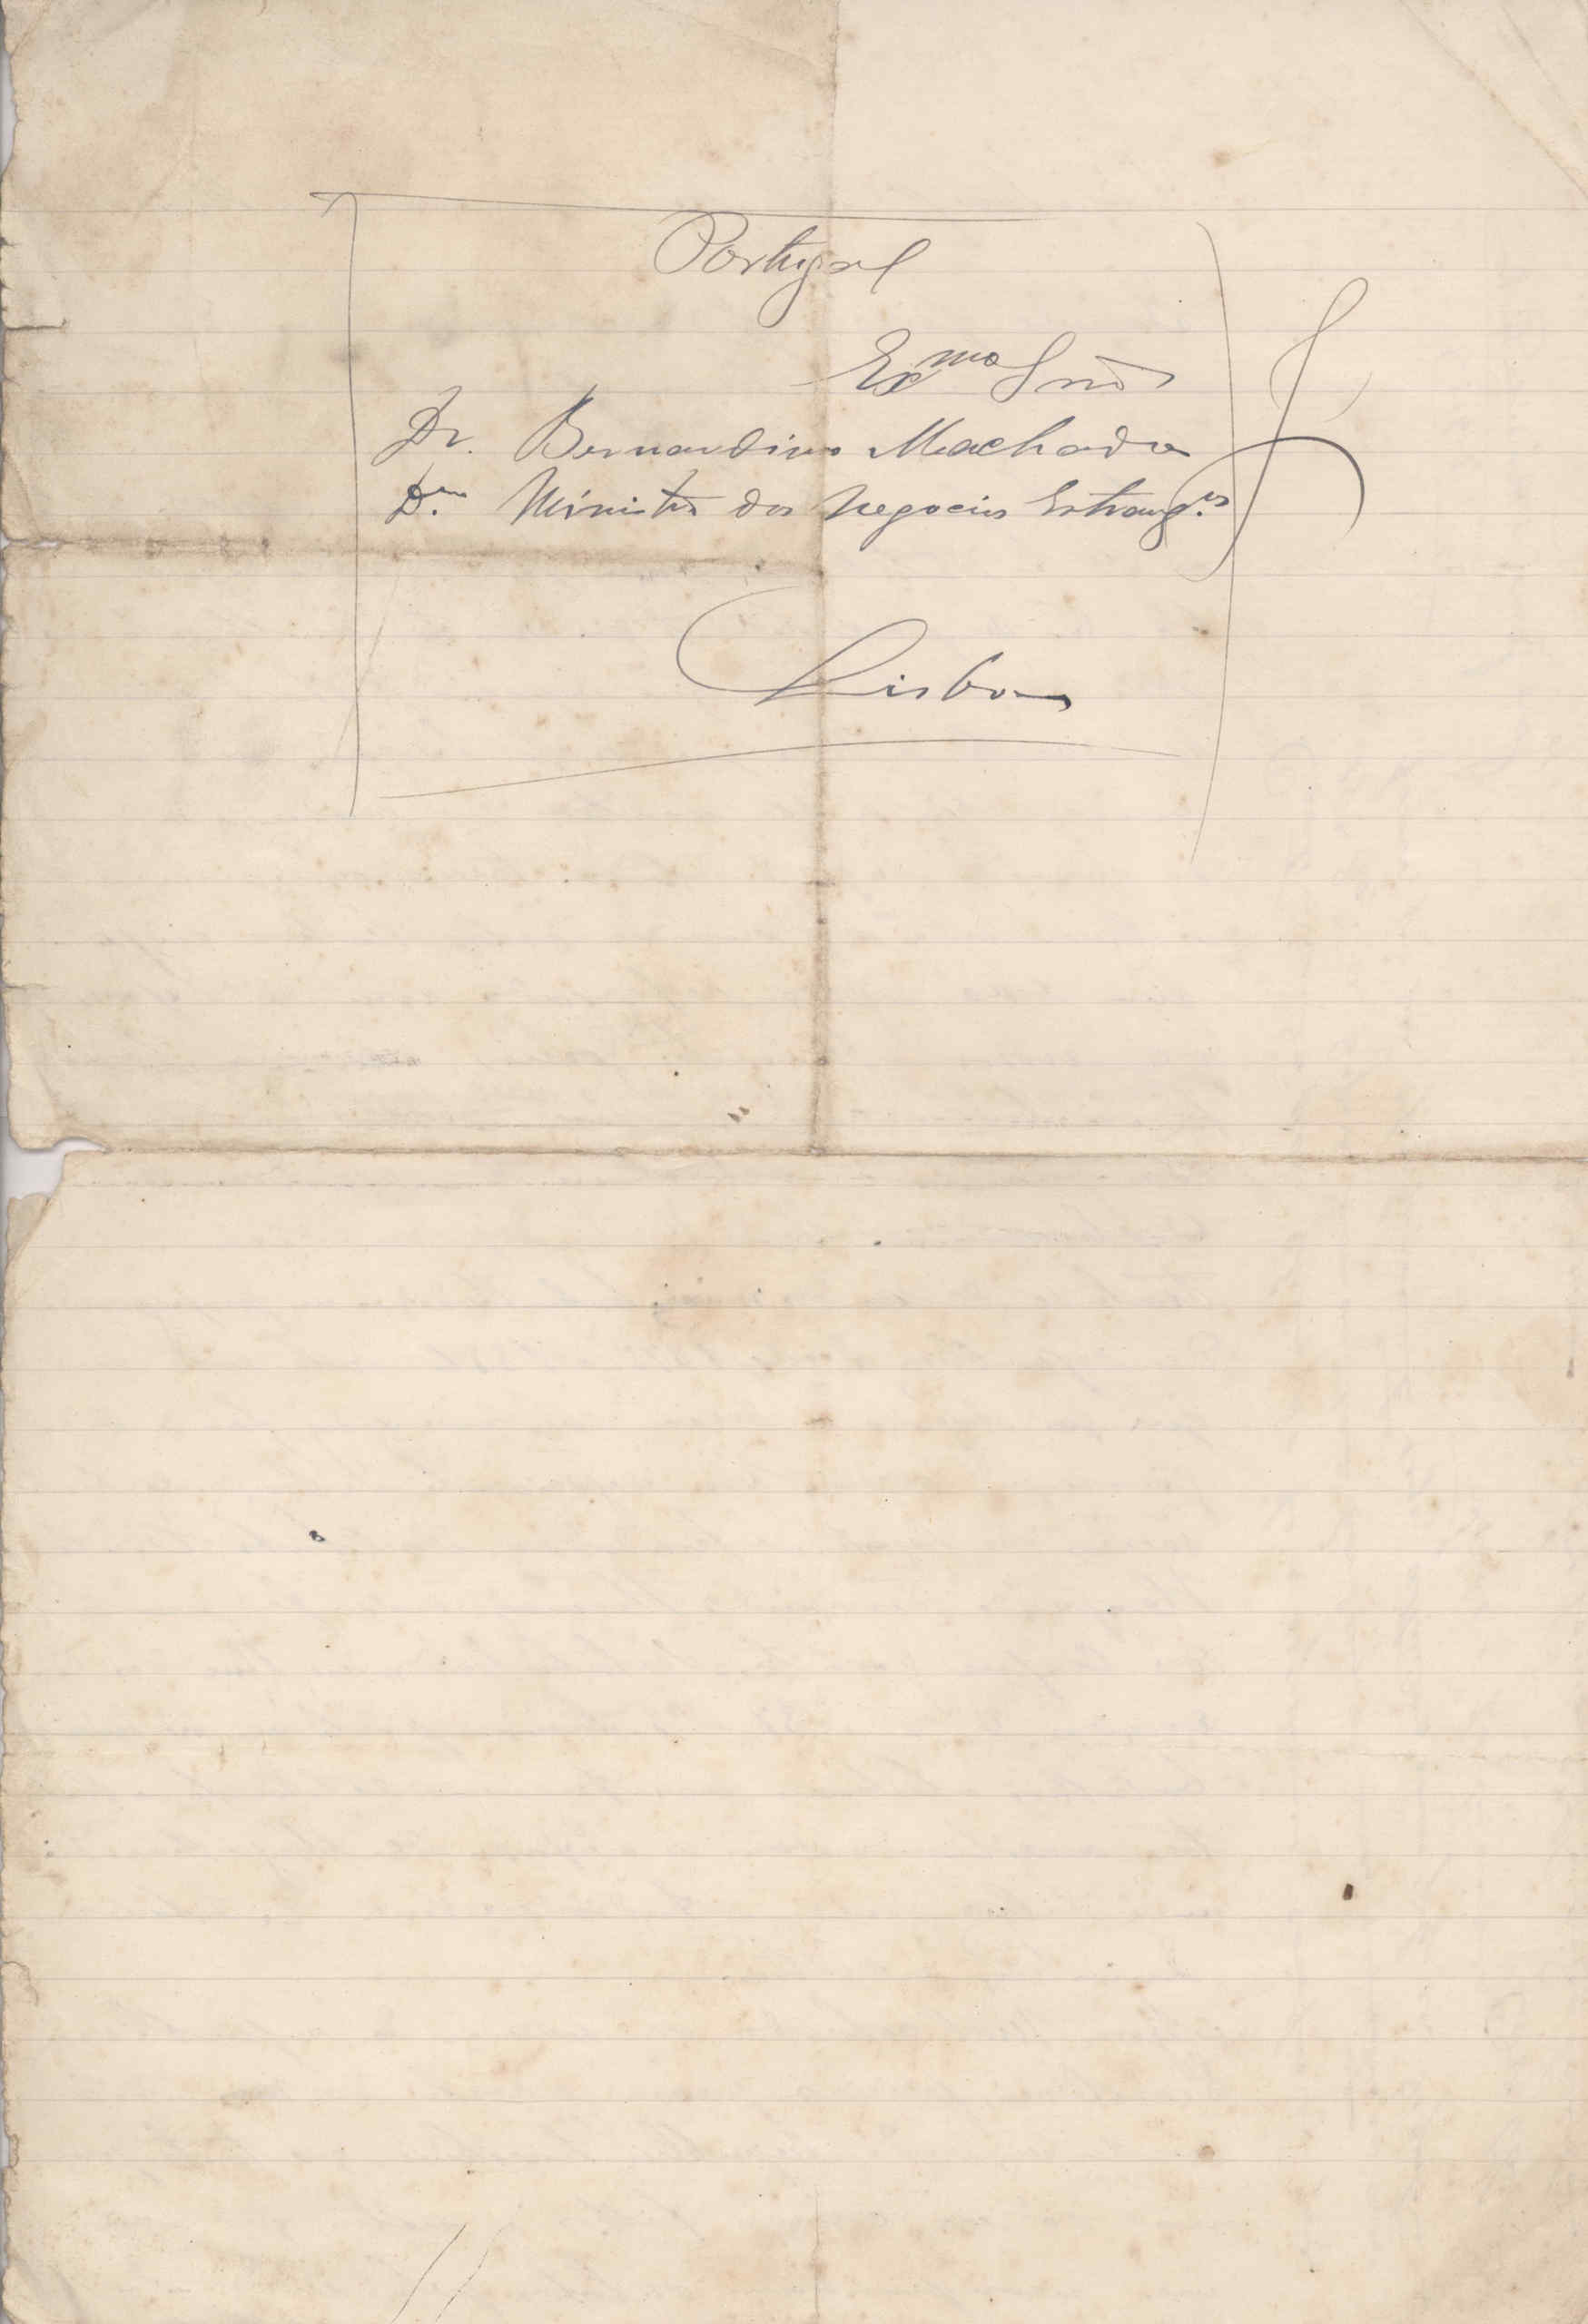 Portugal
Exmo Snr
Dr. Bernardino Machado
Dmo Ministro dos Negocios Estrang.os
Lisboa